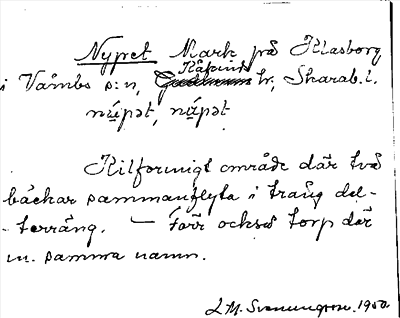 Nypet Mark på Klasborg
i Våmbs s:n, Kåkinds hr, Skarab. l.
nỵ́pət, nỵ́pət
Kilformigt område där två
bäckar sammanflyta i trång dal-
-terräng. — Förr också torp där
m. samma namn.
L. M. Svenungsson. 1950.